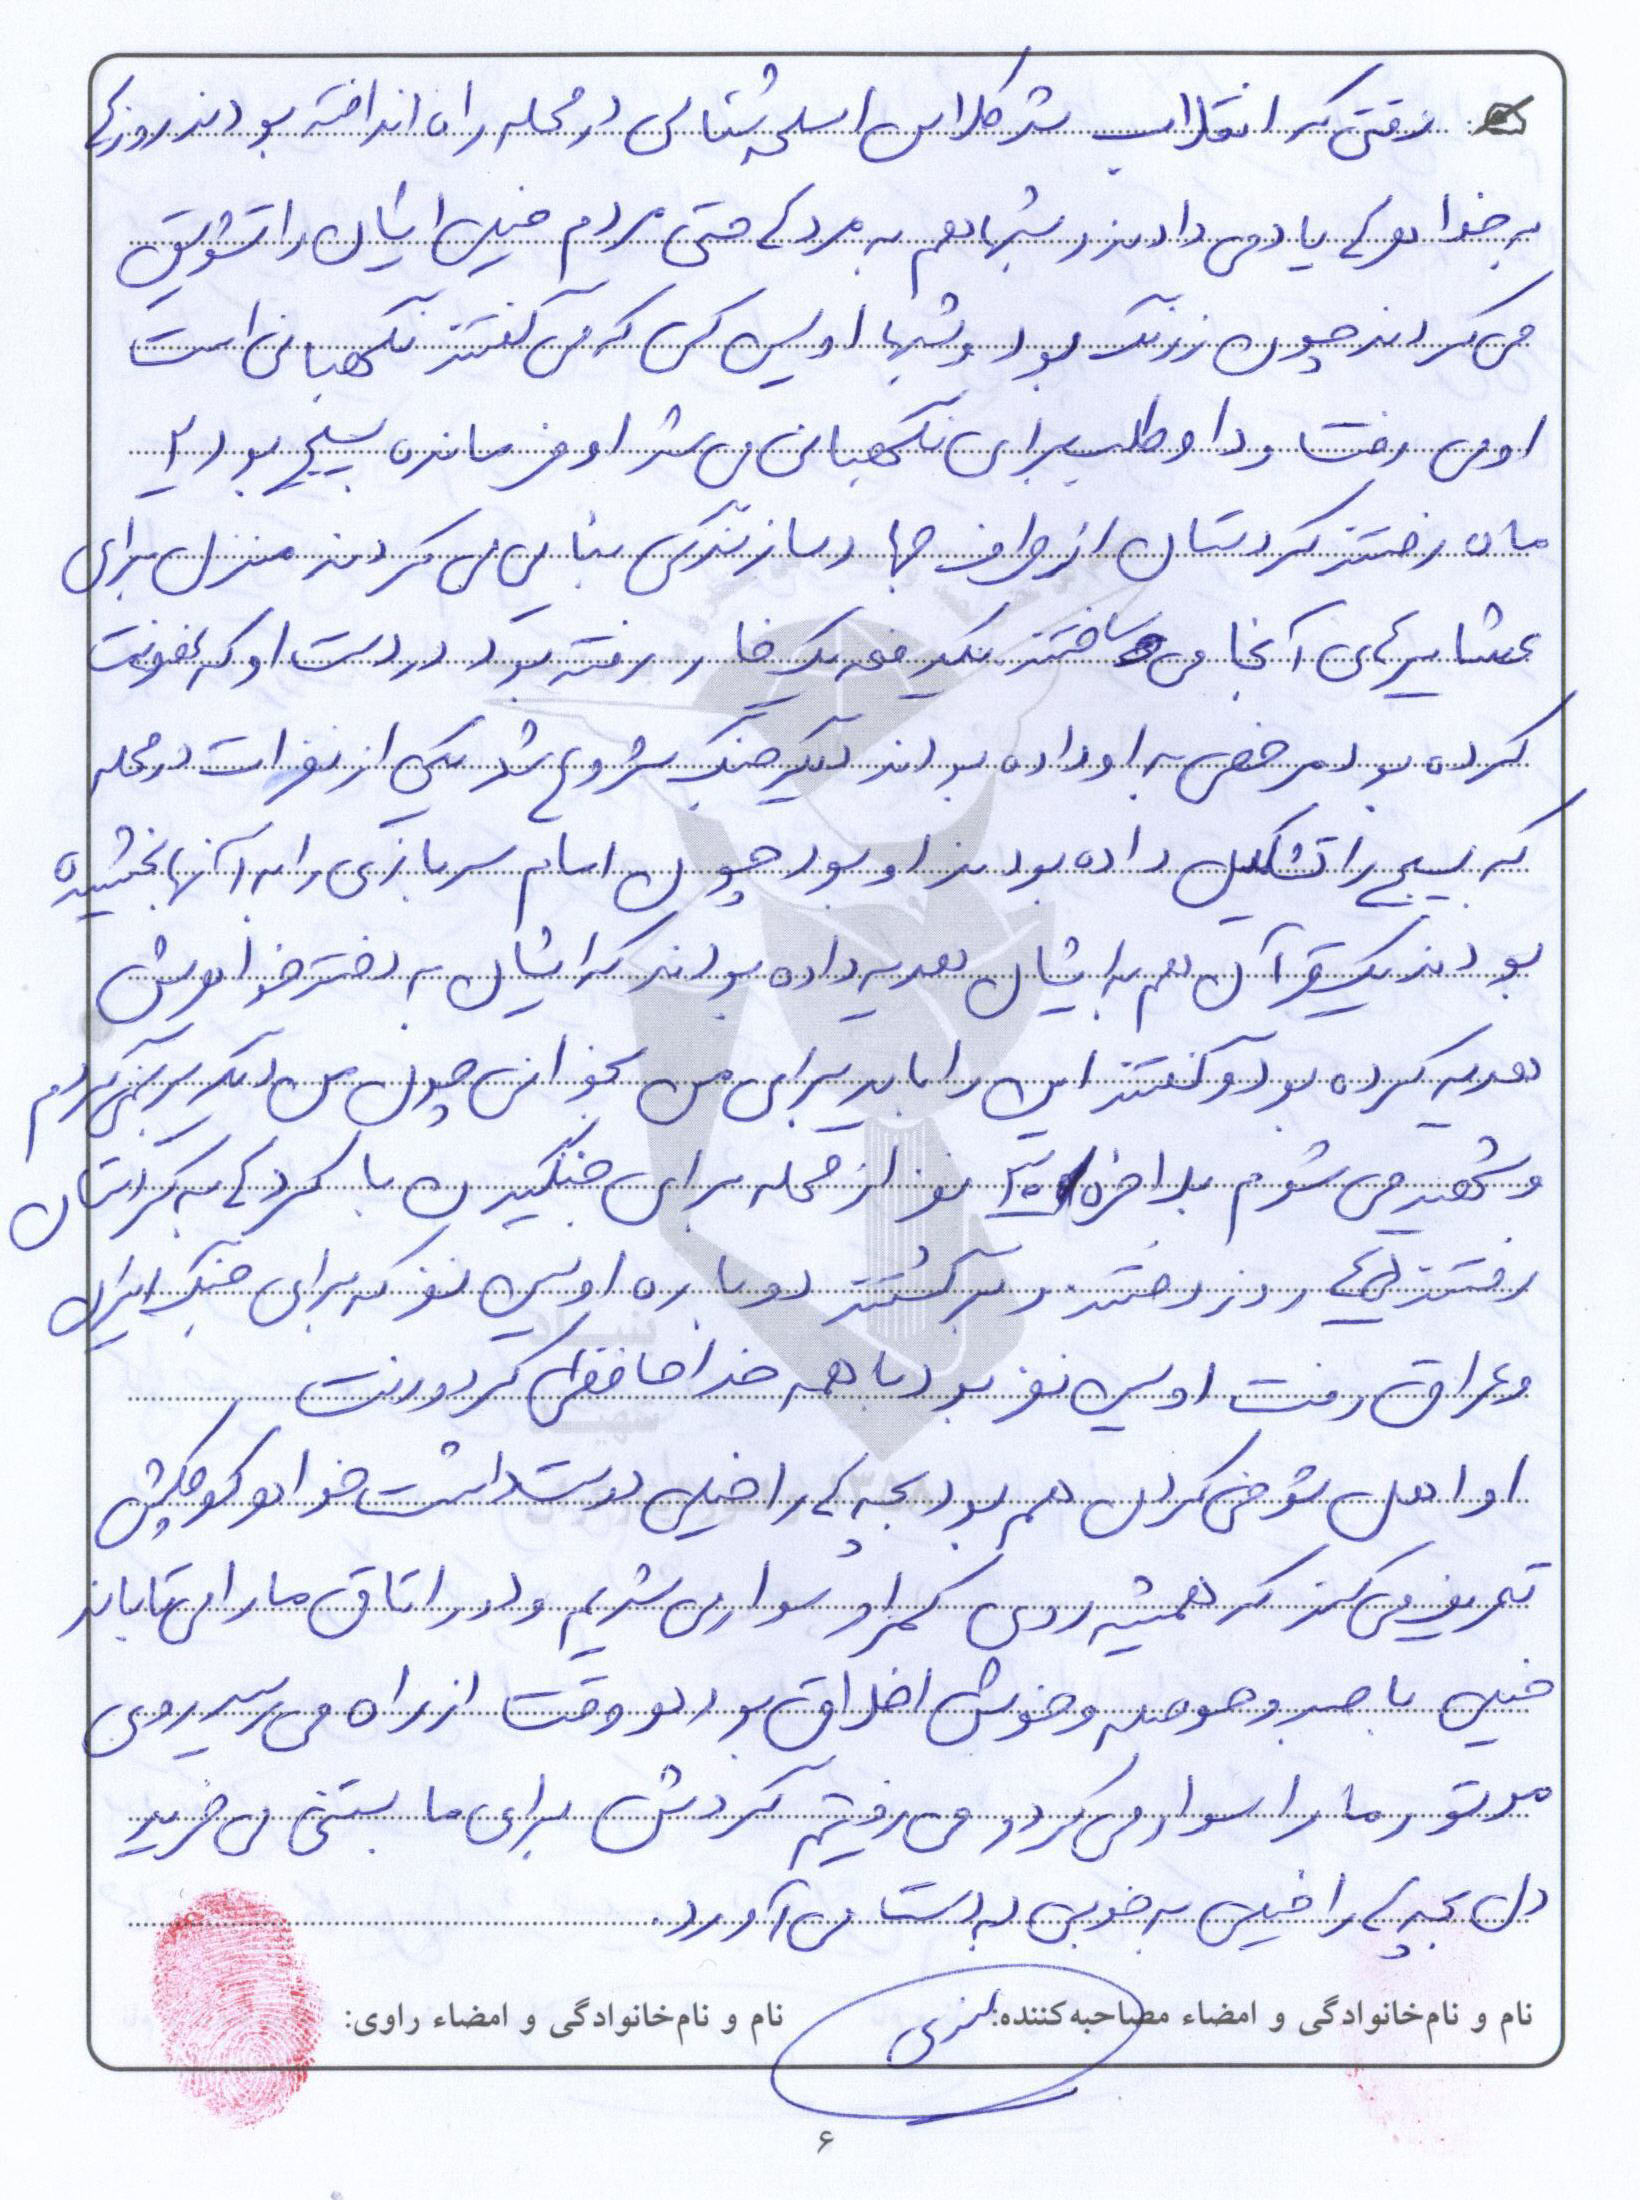 وقتی که انقلاب شد کلاس اسلحه شناسی در محله راه انداخته بودند روزها
به خواهرها یاد می دادند و شبها هم به مردها حتی مردم خیلی ایشان را تشویق
می کردند چون زرنگ بود و شبها اولین کسی که می گفتند نگهبانی است
او می رفت و داوطلب برای نگهبانی می شد او فرمانده بسیج بود ۲
ماه رفتند کردستان از طرف جهاد سازندگی بنایی می کردند منزل برای
عشایرهای آنجا می ساختند یکدفعه یک خار رفته بود در دست او که عفونت
کرده بود مرخصی به او داده بودند دیگر جنگ شروع شد یکی از نفرات در محله
که بسیج را تشکیل داده بودند او بود چون امام سربازی را به آنها بخشیده
بودند یک قرآن هم به ایشان هدیه داده بودند که ایشان به دختر خواهرش
هدیه کرده بود و گفتند این را باید برای من بخوانی چون من دیگر برنمی گردم
و شهید می شوم بلاخره نفر از محله برای جنگیدن با کردها به کردستان
رفتند روز رفتند و برگشتند دوباره اولین نفر که برای جنگ ایران
و عراق رفت اولین نفر بود با همه خداحافظی کرد و رفت
او اهل شوخی کردن هم بود بچه ها را خیلی دوست داشت خواهر کوچکش
تعریف می کند که همیشه روی کمر او سوار می شدیم و دور اتاق ما را می تاباند
خیلی با صبر و حوصله و خوش اخلاق بود هر وقت از راه می رسید روی
موتور ما را سوار می کرد و می رفتیم گردش برای ما بستنی می خرید
دل بچه ها را خیلی به خوبی به دست می آورد.
نام و نام‌خانوادگی و امضاء مصاحبه‌کننده: نام و نام‌خانوادگی و امضاء راوی:
۶